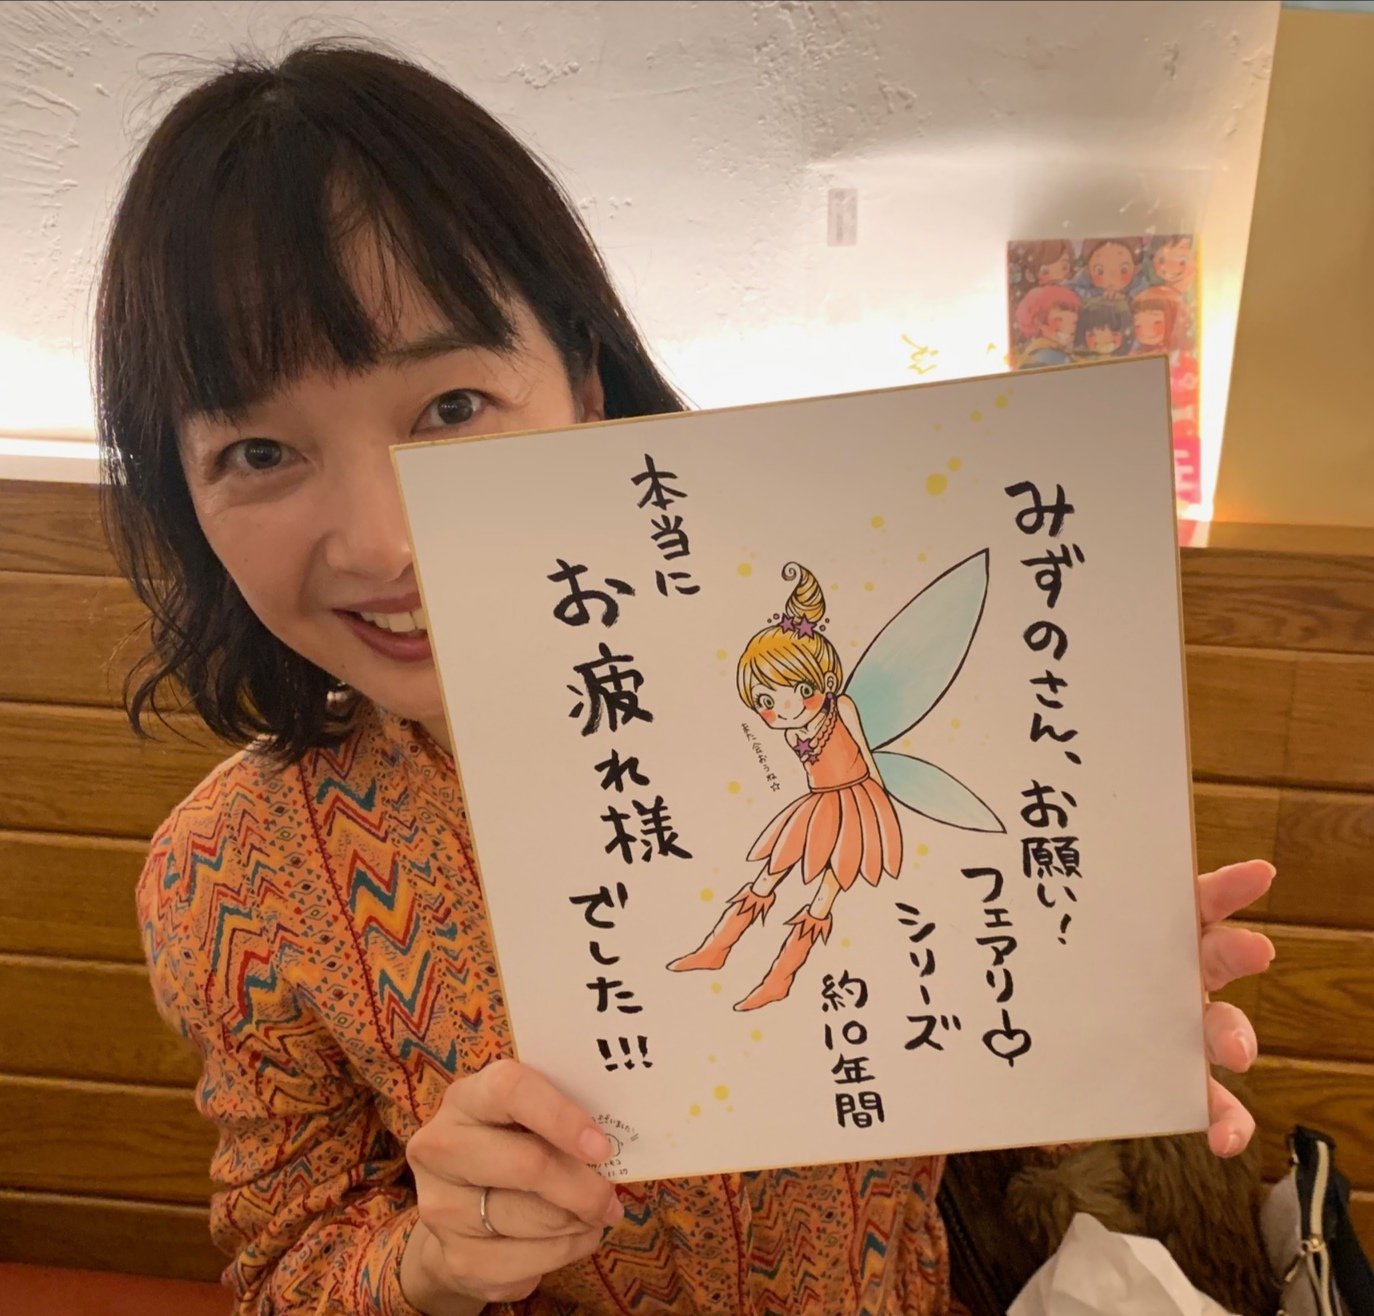 みずのさん、お願い!
フェアリー♡
シリーズ
約10年間
本当に
お疲れ様
でした!!!
また会おうね☆
ございました!!
11.27